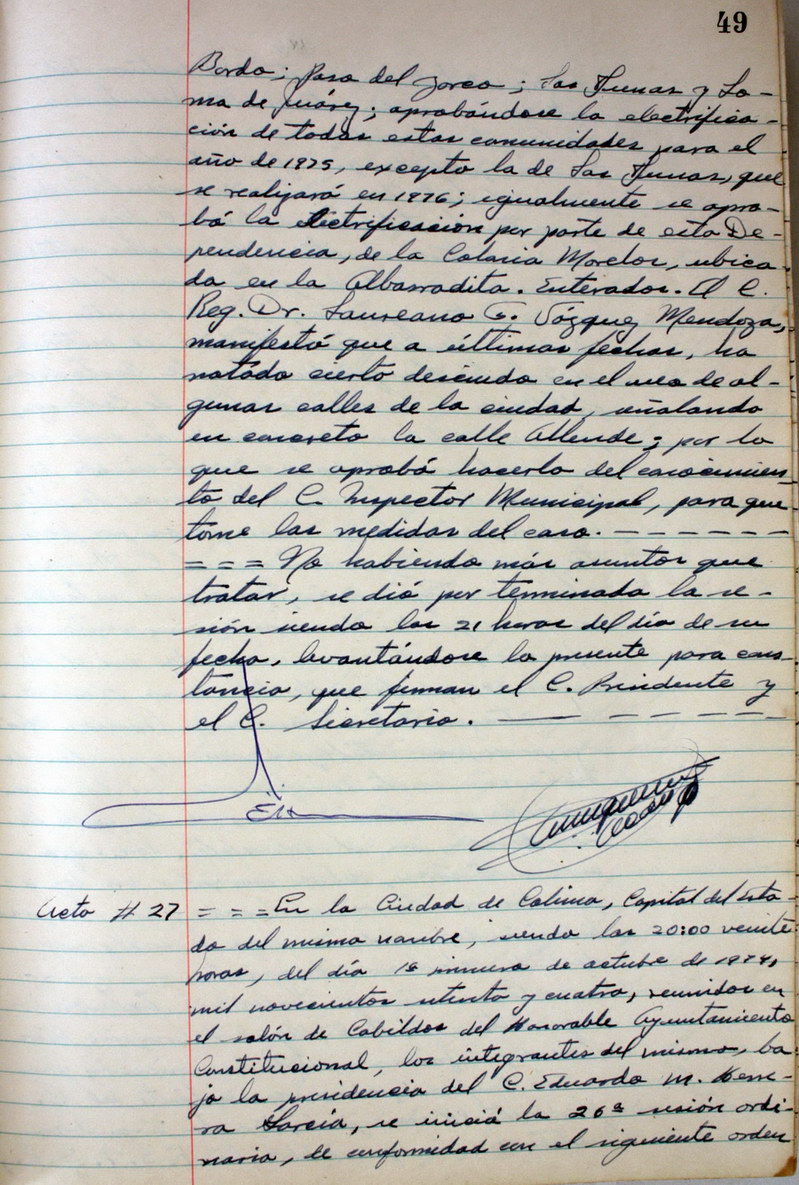 49
Bordo; Paso del Jorco; Las Tunas y Lo-
ma de Juárez; aprobándose la electrifica-
ción de todas estas comunidades para el
año de 1975, excepto la de Las Tunas, que
se realizará en 1976; igualmente se apro-
bó la electrificación por parte de esta De-
pendencia, de la Colonia Morelos, ubica-
da en la Albarradita. Enterados. El C.
Reg. Dr. Laureano G. Vázquez Mendoza,
manifestó que a últimas fechas, ha
notado cierto descuido en el aseo de al-
gunas calles de la ciudad, señalando
en concreto la calle Allende; por lo
que se aprobó hacerlo del conocimien-
to del C. Inspector Municipal, para que
tome las medidas del caso. - - - - - -
= = = No habiendo más asuntos que
tratar, se dió por terminada la se-
sión siendo las 21 horas del día de su
fecha, levantándose la presente para cons-
tancia, que firman el C. Presidente y
el C. Secretario. - - - - -
Acta # 27 = = = En la Ciudad de Colima, Capital del Esta-
do del mismo nombre, siendo las 20:00 veinte
horas, del día 1º primero de octubre de 1974,
mil novecientos setenta y cuatro, reunidos en
el salón de Cabildos del Honorable Ayuntamiento
Constitucional, los integrantes del mismo, ba-
jo la presidencia del C. Eduardo M. Herre-
ra García, se inició la 26ª sesión ordi-
naria, de conformidad con el siguiente orden